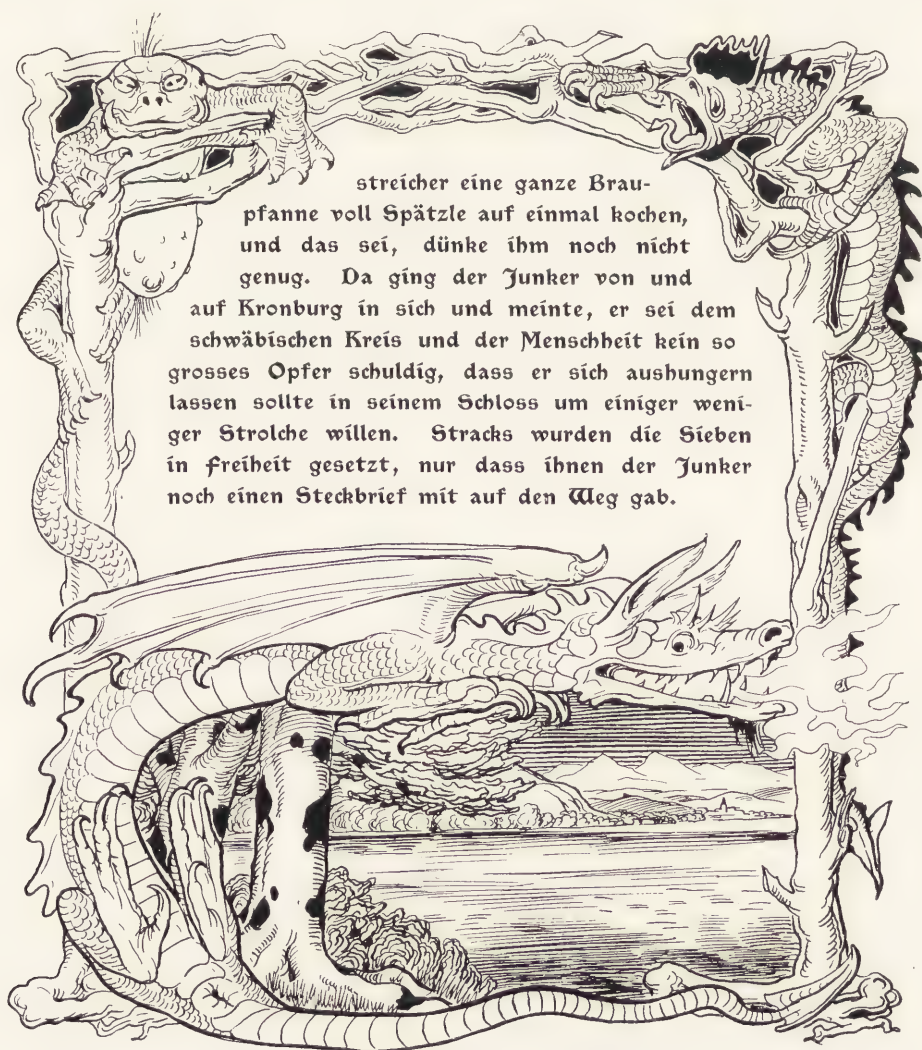 streicher eine ganze Brau-
pfanne voll Spätzle auf einmal kochen,
und das sei, dünke ihm noch nicht
genug. Da ging der Junker von und
auf Kronburg in sich und meinte, er sei dem
schwäbischen Kreis und der Menschheit kein so
grosses Opfer schuldig, dass er sich aushungern
lassen sollte in seinem Schloss um einiger weni-
ger Strolche willen. Stracks wurden die Sieben
in Freiheit gesetzt, nur dass ihnen der Junker
noch einen Steckbrief mit auf den Weg gab.